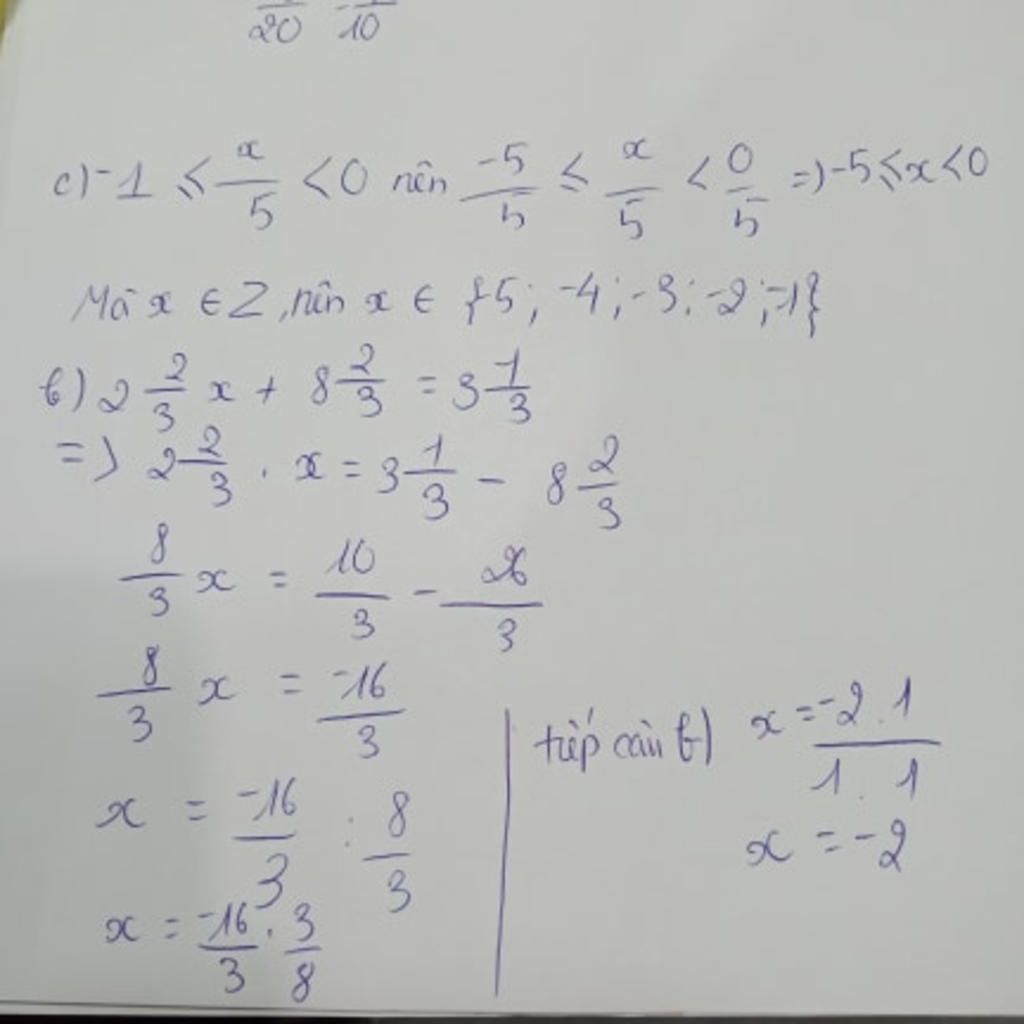 20 10
c) -1 ≤ x/5 < 0 nên -5/5 ≤ x/5 < 0/5 => -5 ≤ x < 0
Mà x ∈ Z, nên x ∈ {5; -4; -3; -2; -1}
b) 2 2/3 x + 8 2/3 = 3 1/3
=> 2 2/3 . x = 3 1/3 - 8 2/3
8/3 x = 10/3 - 26/3
8/3 x = -16/3
x = -16/3 : 8/3
x = -16/3 . 3/8
tiếp câu b) x = -2.1/1.1
x = -2